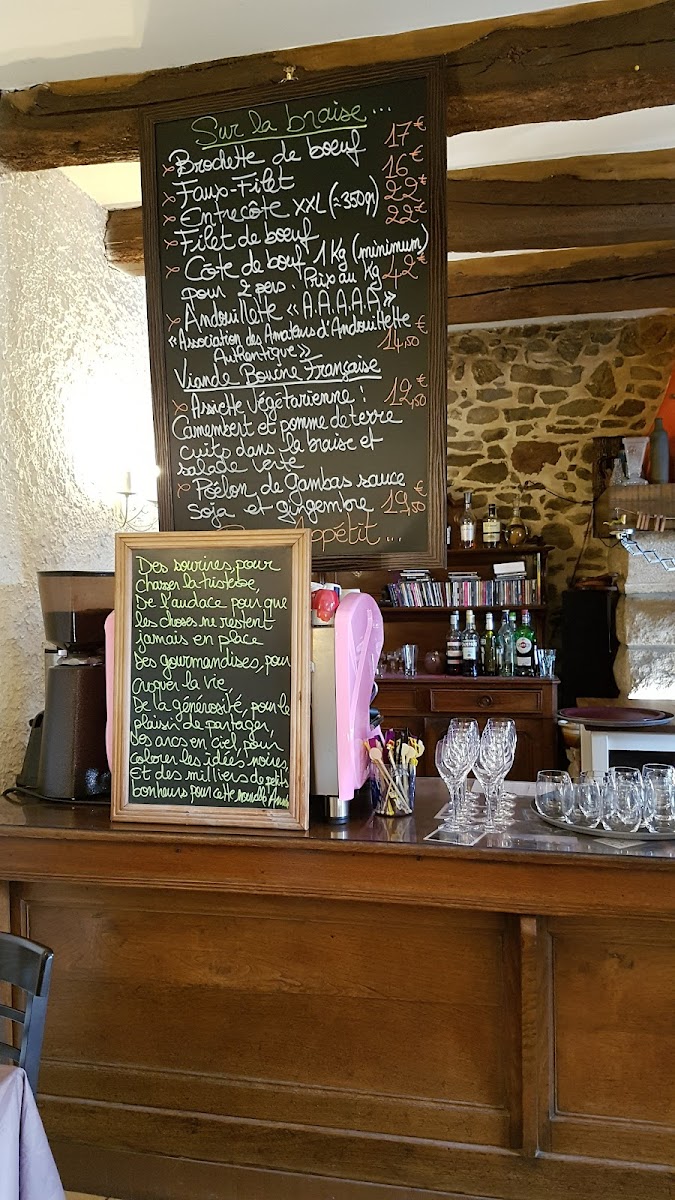 Sur la braise...
x Brochette de bœuf 17€
x Faux-Filet 16€
x Entrecôte XXL (≈350gr) 22€
x Filet de bœuf 22€
x Côte de bœuf 1Kg (minimum)
pour 2 pers. Prix au Kg 42€
x Andouillette "A.A.A.A.A"
"Association des Amateurs d'Andouillette
Authentique" 14,50€
Viande Bovine Française
x Assiette Végétarienne! 12,50€
Camembert et pomme de terre
cuits dans la braise et
salade verte
x Pöêlon de Gambas sauce
soja et gingembre 19,50€
Appétit...
Des sourires, pour
chasser la tristesse,
De l'audace pour que
les choses ne restent
jamais en place
Des gourmandises, pour
croquer la vie,
De la générosité, pour le
plaisir de partager,
Des arcs en ciel, pour
colorer les idées noires,
Et des milliers de petits
bonheurs pour cette nouvelle Année